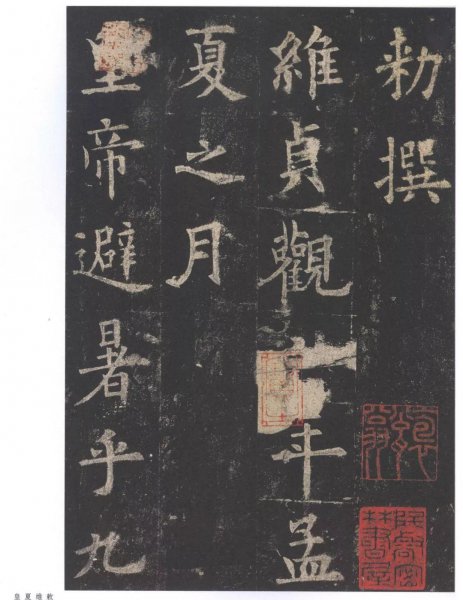 勅撰
維貞觀六年孟
夏之月
皇帝避暑乎九
皇 夏 維 敕